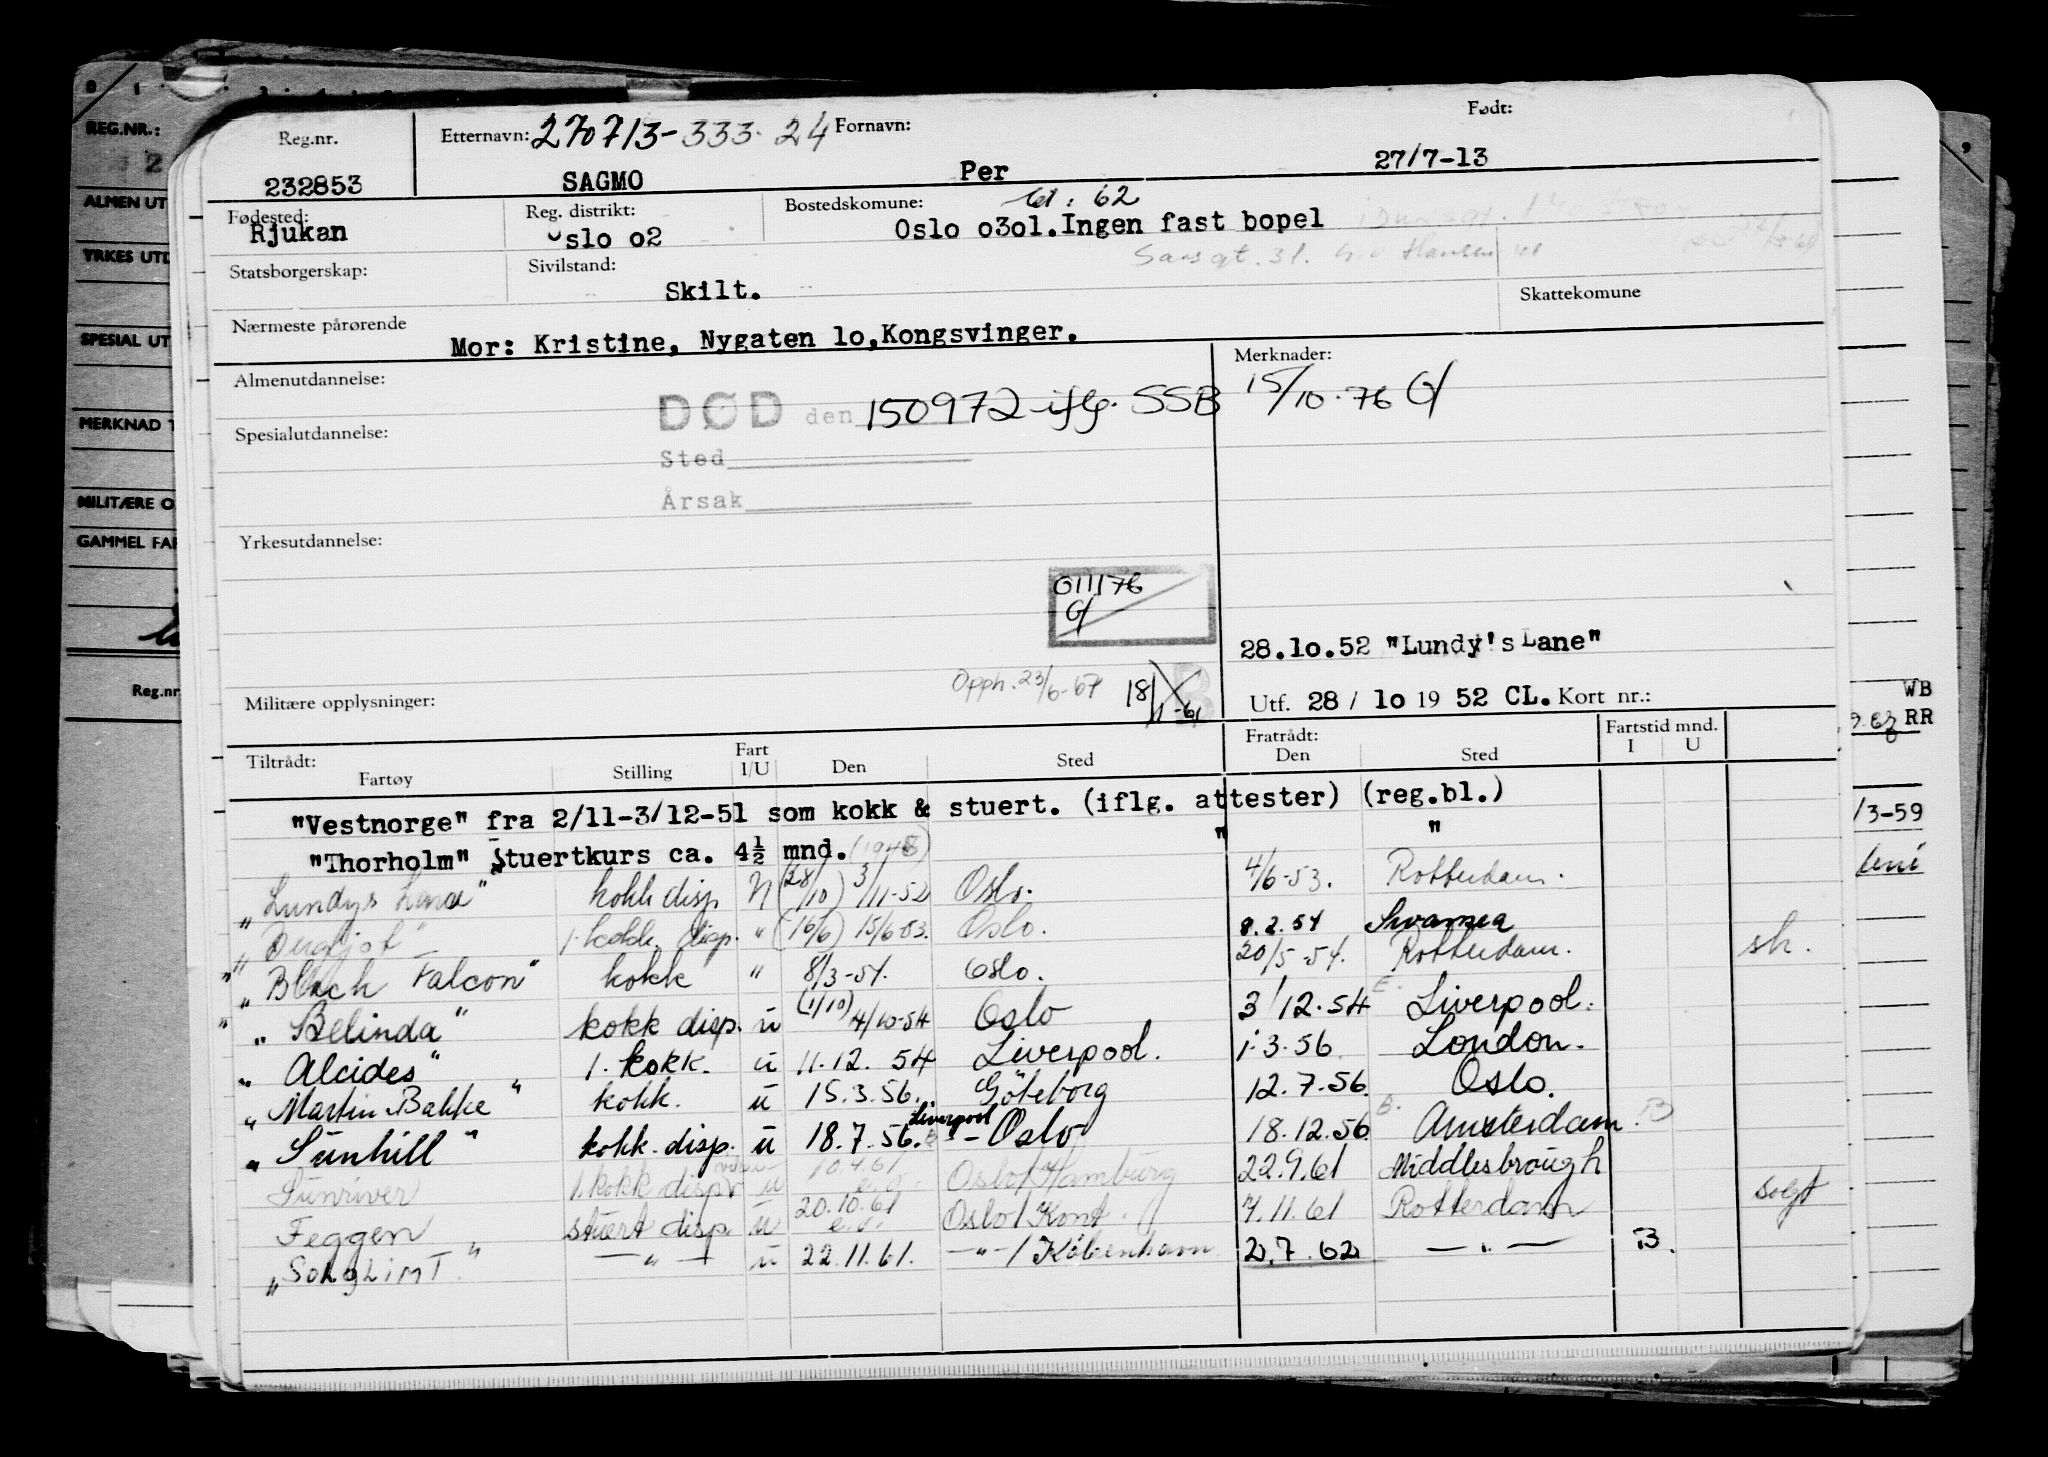 REG.NR.:
ALMEN UT
YRKES UTD
SPECIAL UT
MERKNAD T
MILITÆRE O
GAMMEL FAR
Reg.nr.
Reg.nr. Etternavn: 270713-333.24 Fornavn: Født:
232853 SAGMO Per 27/7-13
Fødested: Reg. distrikt: Bostedskomune: 62
Rjukan slo o2 Oslo o3ol.Ingen fast bopel
Sarsgt. 31. Hansen
Statsborgerskap: Sivilstand: Skattekomune
Skilt.
Nærmeste pårørende
Mor: Kristine, Nygaten lo,Kongsvinger.
Almenutdannelse: Merknader:
DØD den 150972 iflg. SSB 15/10.76
Spesialutdannelse:
Sted
Årsak
Yrkesutdannelse:
011176
28.lo.52 "Lundy's Lane"
Opph. 23/6-67 18/11-61
Militære opplysninger: Utf. 28 / lo 19 52 CL. Kort nr.:
WB
RR
Tiltrådt: Fart Fratrådt: Fartstid mnd.
Fartøy Stilling I/U Den Sted Den Sted I U
"Vestnorge" fra 2/11-3/12-51 som kokk & stuert. (iflg. attester) (reg.bl.)
/3-59
"Thorholm" Stuertkurs ca. 4½ mnd. " "
"Lundys Lane" kokk disp (28/10) 3/11-52 Oslo. 4/6-53. Rotterdam.
1. kokk disp. " (16/6) 15/6-53. Oslo. 8.2.54 Swansea
"Black Falcon" kokk " 8/3-54. Oslo. 20/5-54. Rotterdam. sk.
"Belinda" kokk disp. u (1/10) 4/10-54 Oslo 3/12.54 Liverpool.
"Alcides" 1. kokk. u 11.12.54 Liverpool. 1.3.56 London.
"Martin Bakke" kokk. u 15.3.56. Göteborg 12.7.56 Oslo.
"Sunhill" kokk disp. u 18.7.56. Liverpool - Oslo 18.12.56 Amsterdam. B
Sunriver 1. kokk disp u 10.4.61 Oslo/Hamburg 22.9.61 Middlesbrough
Feggen stuert disp. u 20.10.61 Oslo/Kont. 7.11.61 Rotterdam solgt
"SOLGLIMT" — " — u 22.11.61. -"-/København 2.7.62 — " — B.